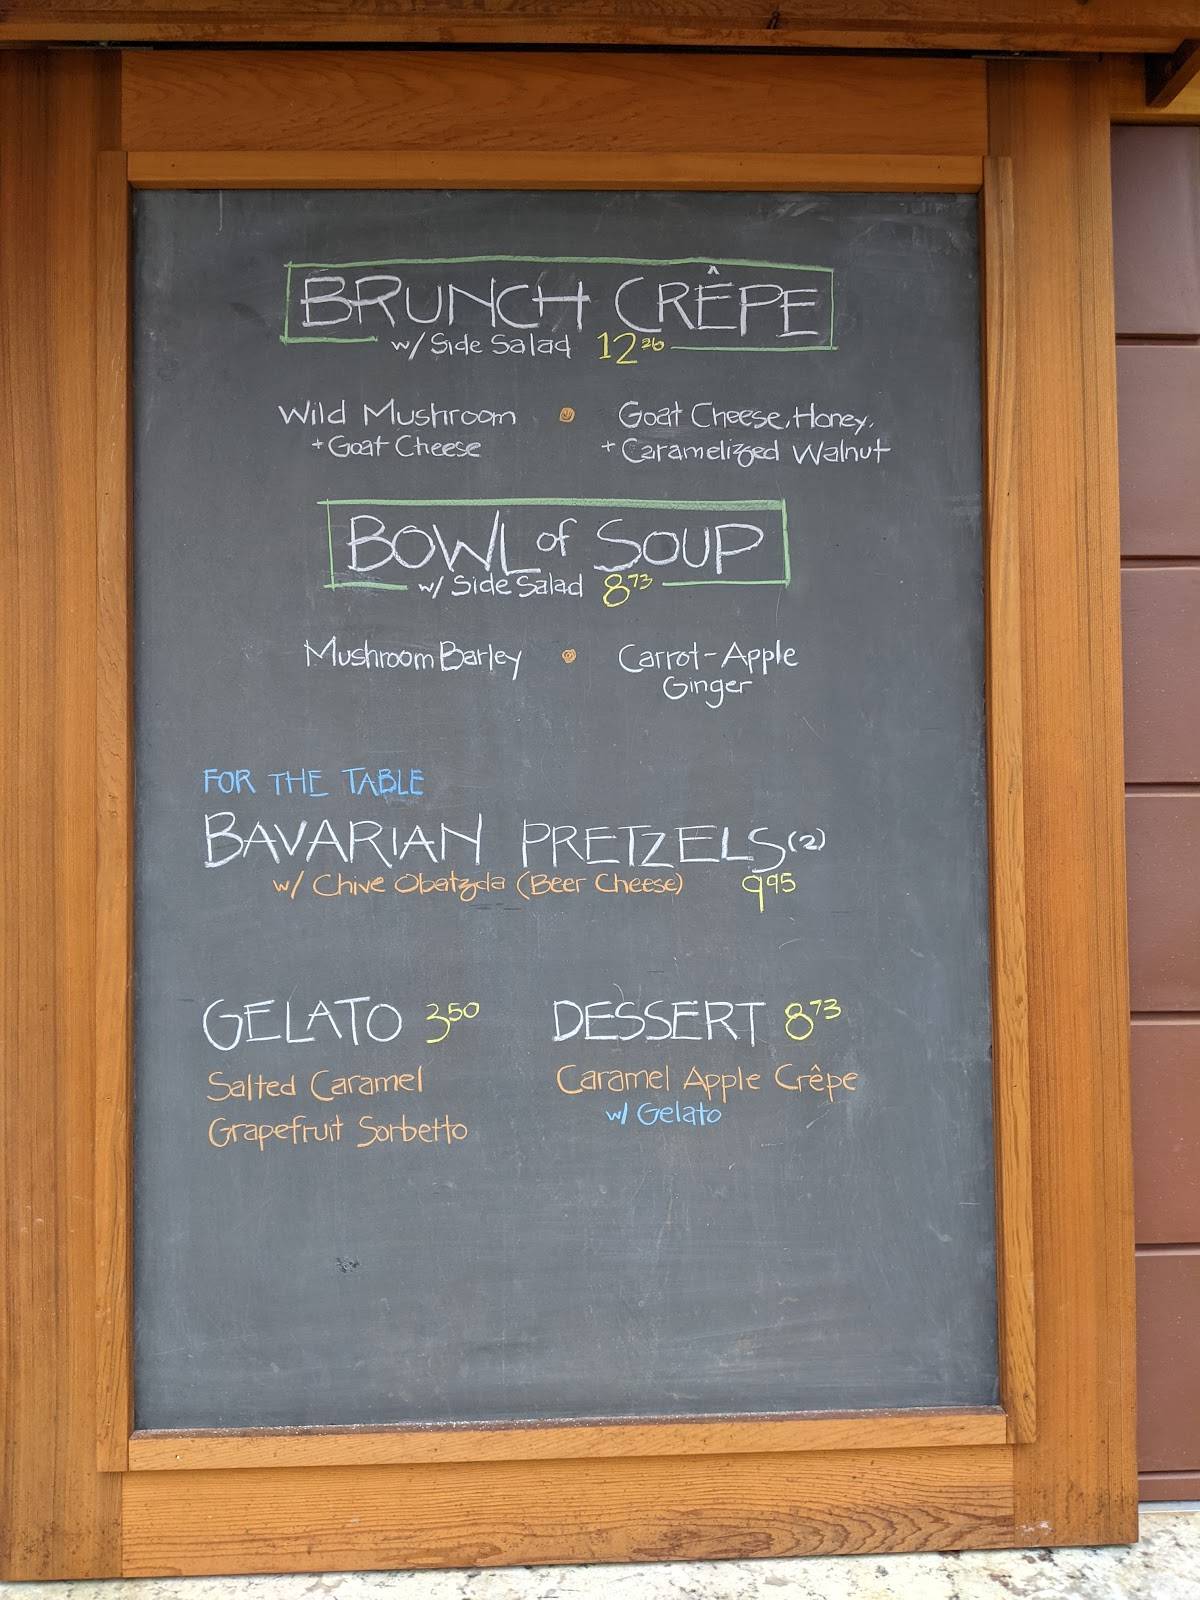 BRUNCH CRÊPE
w/ Side Salad 12 26
Wild Mushroom
+ Goat Cheese
Goat Cheese, Honey,
+ Caramelized Walnut
BOWL of SOUP
w/ Side Salad 8 73
Mushroom Barley
Carrot-Apple
Ginger
FOR THE TABLE
BAVARIAN PRETZELS (2)
w/ Chive Obatzda (Beer Cheese) 9 95
GELATO 3 50
Salted Caramel
Grapefruit Sorbetto
DESSERT 8 73
Caramel Apple Crêpe
w/ Gelato